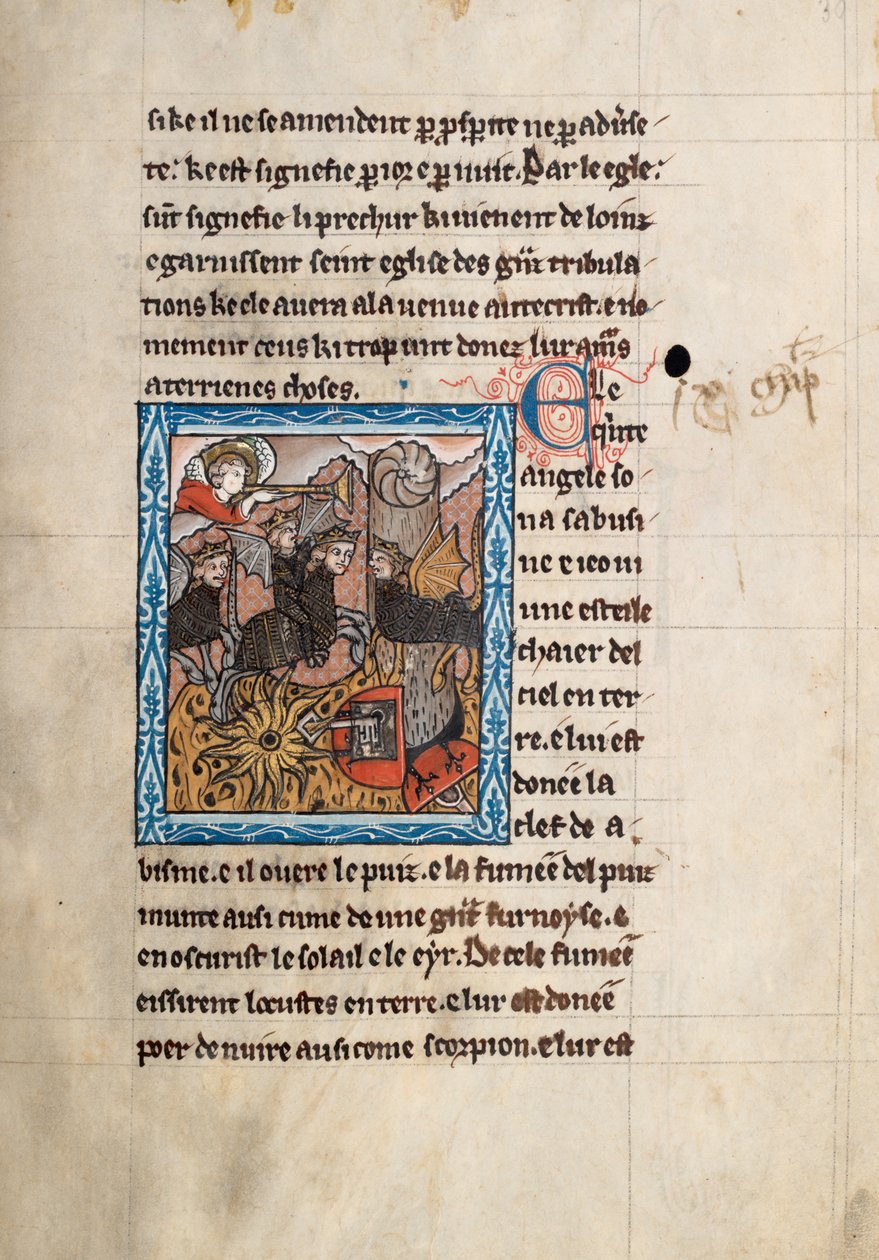 si ke il ne se amendent p̲ p̲sp̲ite ne p̲ adu̓se
te: ke est signefie p̲ ior e p̲ nuit. Par le egle:
sūt signefie li prechur ki uienent de loinz
e garnissent seint eglise des gᵃnz tribula
tions ke ele auera a la uenue antecrist. e no
mement ceus ki trop unt donez lur amᵘˢ
a terrienes choses.
E le
qⁱnte
angele so
na sa busi
ne e ieo ui
une esteile
chaier del
ciel en ter
re. e lui est
doneé la
clef de a
bisme. e il ouere le puiz. e la fumeé del puiz
munte ausi cume de une gᵃnt furnoyse. e
en oscurist le solail e le eyr. De cele fumeé
eissirent locustes en terre. e lur est doneé
poer de nuire ausi come scorpion. e lur est